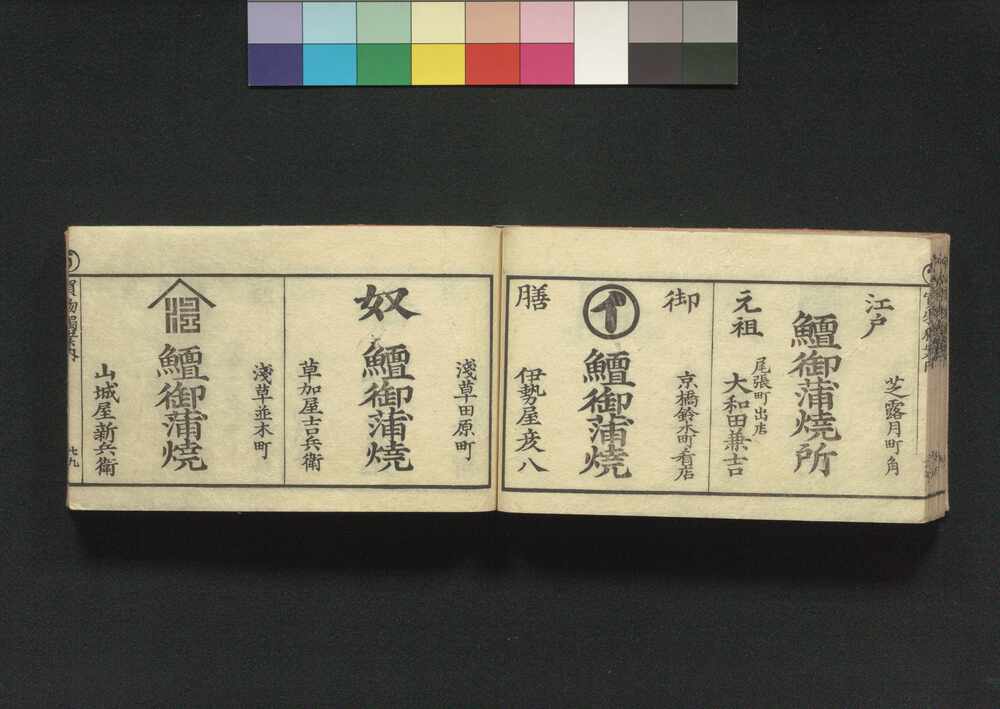 江戸
芝露月町角
鱣御蒲焼所
元祖
尾張町出店
大和田兼吉
御
京橋鈴木町肴店
鱣御蒲焼
膳
伊勢屋亥八
淺草田原町
奴
鱣御蒲焼
草加屋吉兵衛
淺草並木町
鱣御蒲焼
山城屋新兵衛
買物獨案内
七九